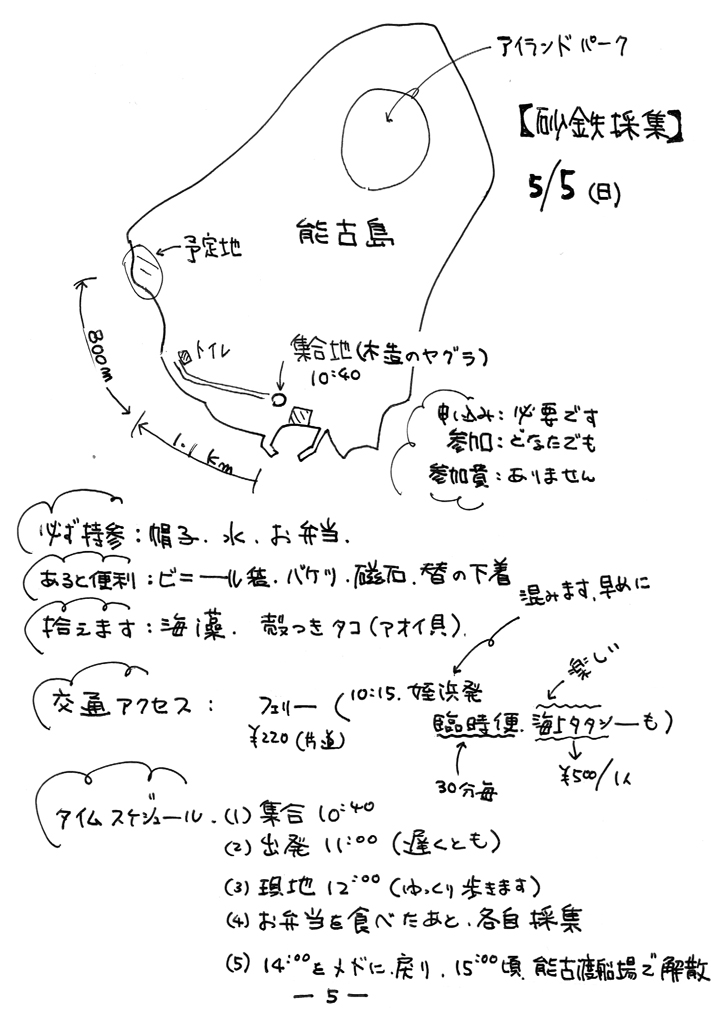 アイランドパーク
【砂鉄採集】
5/5(日)
能古島
予定地
800m
トイレ
集合地(木造のヤグラ)
10:40
1.1km
申込み:必要です
参加:どなたでも
参加費:ありません
必ず持参:帽子.水.お弁当.
あると便利:ビニール袋.バケツ.磁石.替の下着
拾えます:海藻.殻つきタコ(アオイ貝).
混みます.早めに
楽しい
交通アクセス: フェリー(10:15.姪浜発
¥220(片道)
臨時便.海上タクシーも)
30分毎
¥500/1人
タイムスケジュール.(1)集合 10:40
(2)出発 11:00(遅くとも)
(3)現地 12:00(ゆっくり歩きます)
(4)お弁当を食べたあと、各自採集
(5)14:00をメドに.戻り.15:00頃.能古渡船場で解散
— 5 —